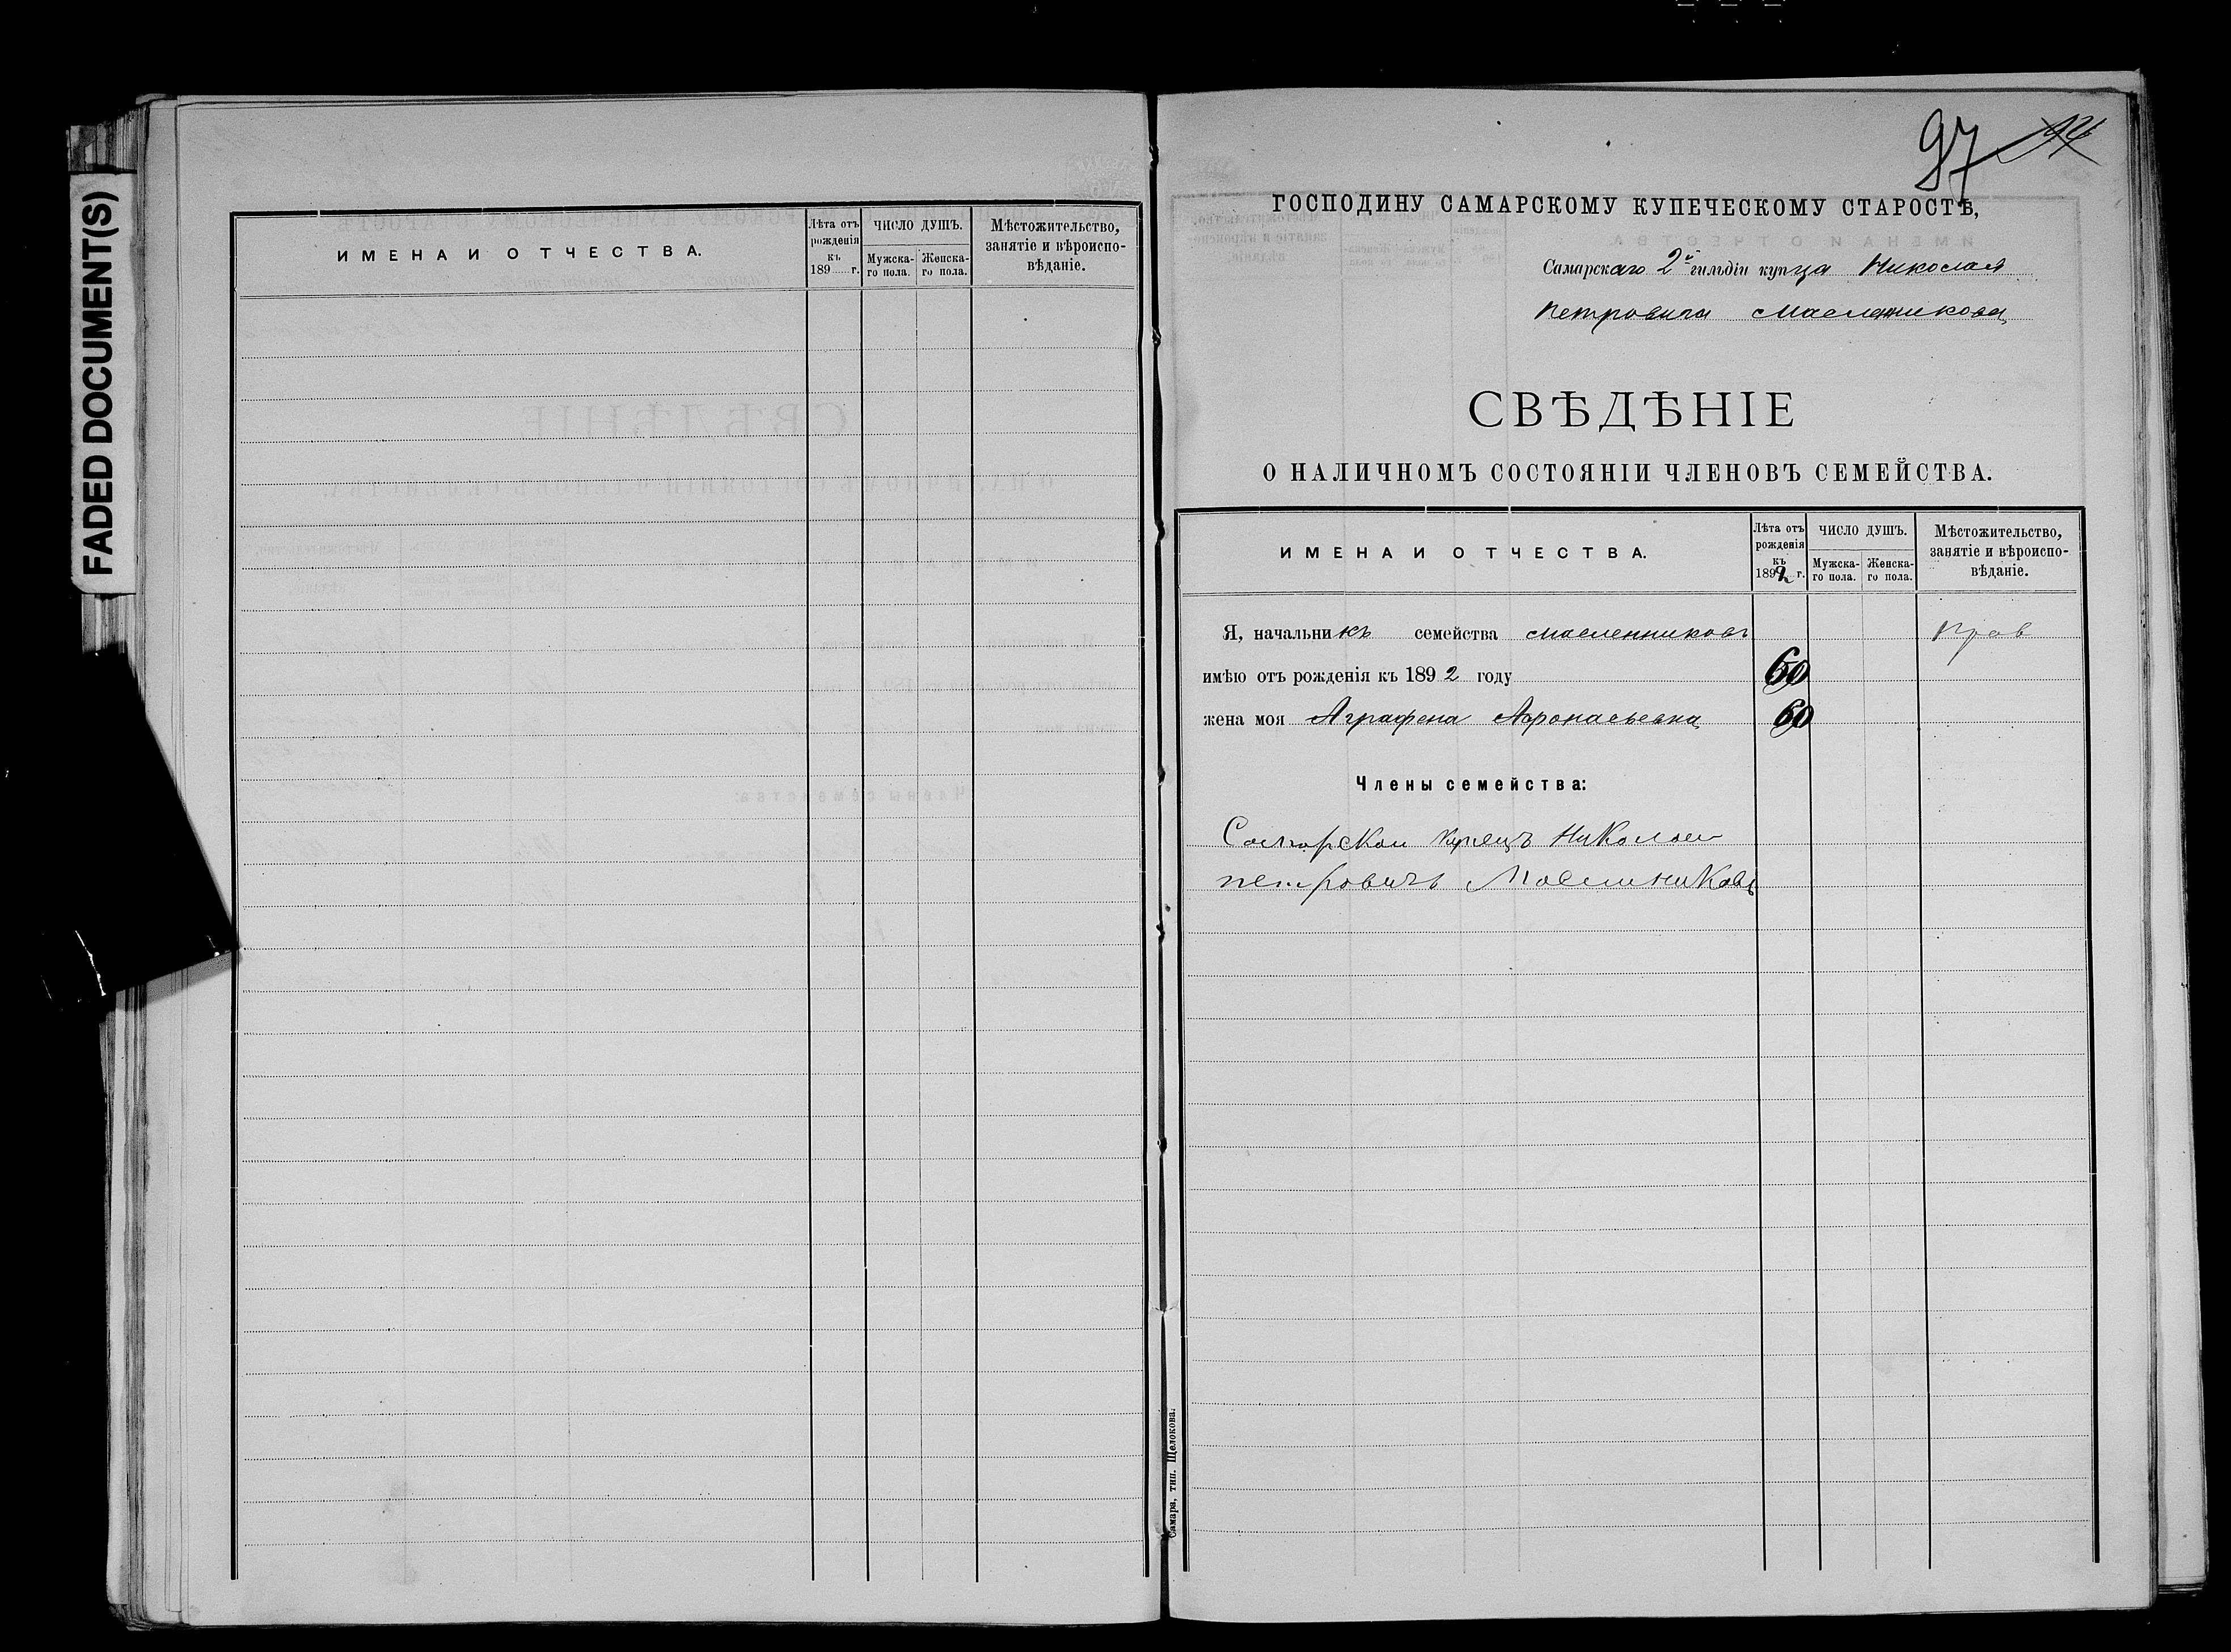 FADED DOCUMENT(S)
ИМЕНА И ОТЧЕСТВА.
Лѣта отъ рожденія къ 189 г.
ЧИСЛО ДУШЪ.
Мужска-го пола.
Женска-го пола.
Мѣстожительство, занятіе и вѣроиспо-вѣданіе.
97
ГОСПОДИНУ САМАРСКОМУ КУПЕЧЕСКОМУ СТАРОСТѢ,
Самарскаго 2й гильдіи купца Николая
Петровича Масленикова
СВѢДѢНІЕ
О НАЛИЧНОМЪ СОСТОЯНІИ ЧЛЕНОВЪ СЕМЕЙСТВА.
ИМЕНА И ОТЧЕСТВА.
Лѣта отъ рожденія къ 1892 г.
ЧИСЛО ДУШЪ.
Мужска-го пола.
Женска-го пола.
Мѣстожительство, занятіе и вѣроиспо-вѣданіе.
Я, начальникъ семейства Масленниковъ Прав
имѣю отъ рожденія къ 1892 году 60
жена моя Аграфена Афонасьевна 60
Члены семейства:
Самарскои купецъ Николаи
петровичъ Маслиниковъ
Самара, тип. Щелокова.